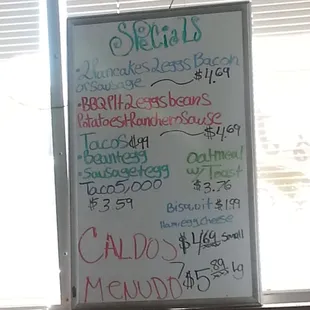 Specials
• 2 Pancakes 2 eggs Bacon
or sausage $4.69
• BBQ Plt 2 eggs beans
Potatoes + Ranchero Sause
$4.69
Tacos $.99
• Bean + egg
• Sausage + egg
Taco 5,000
$3.59
oatmeal
w/ Toast
$3.76
Biscuit $1.99
Ham egg cheese
CALDOS $4.69 small
MENUDO $5.89 Lg